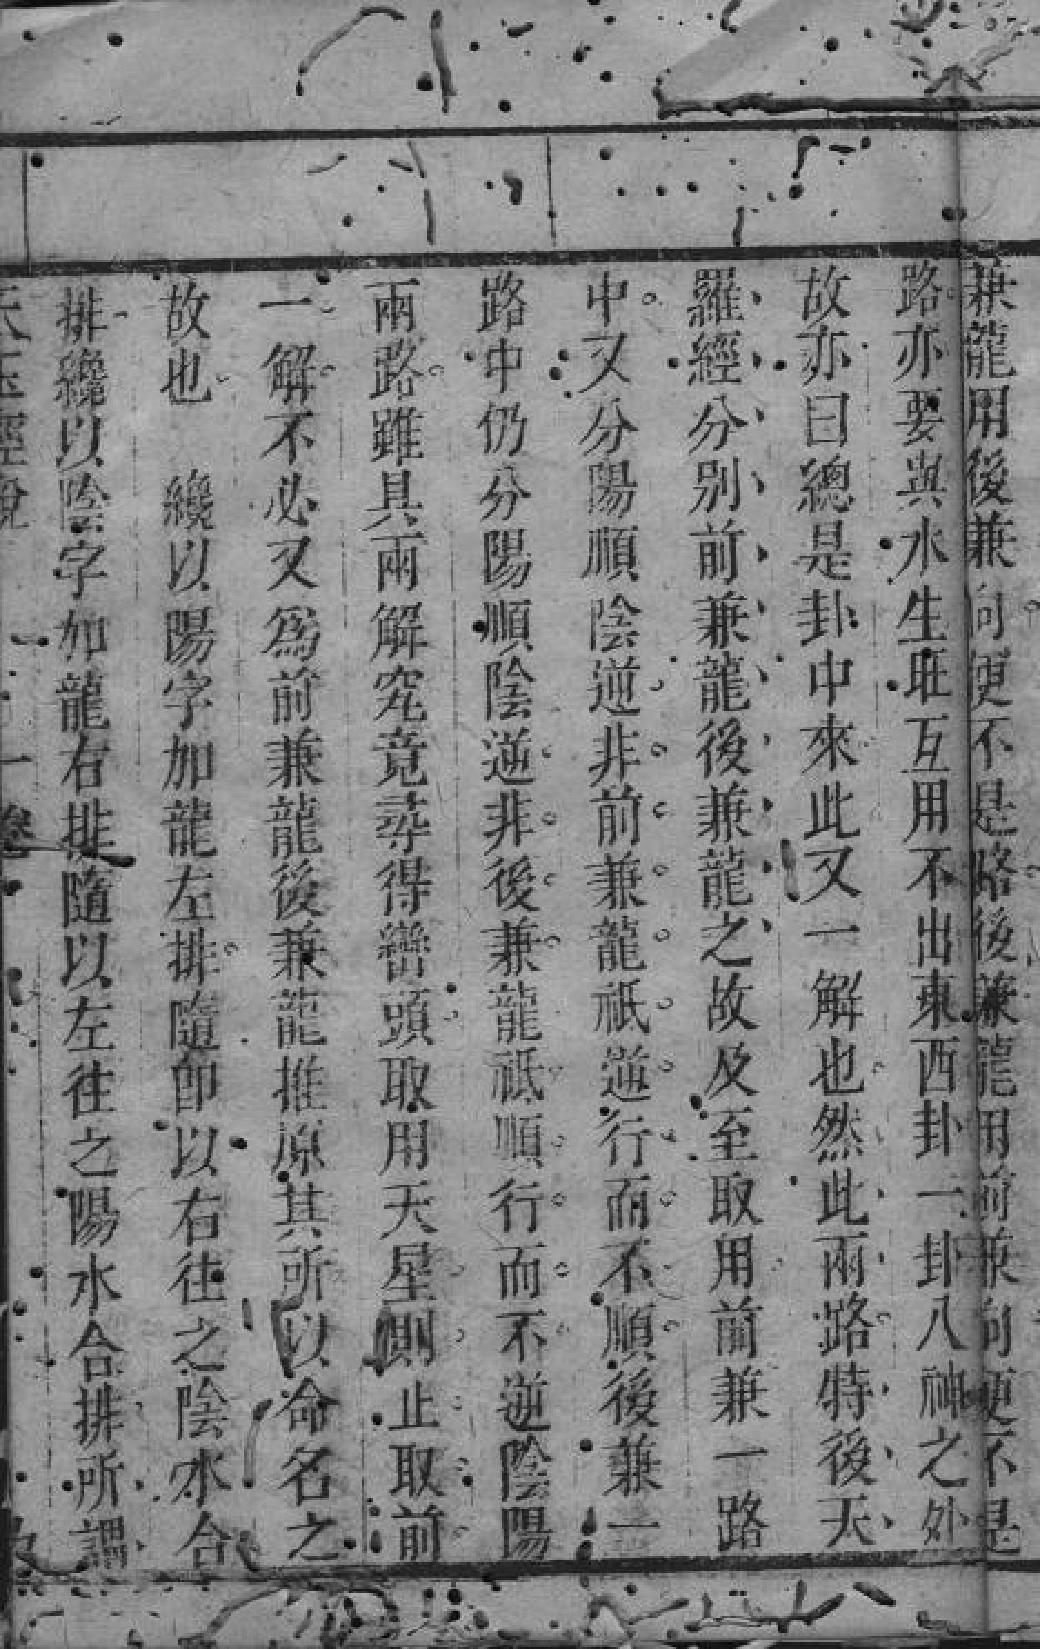 兼龍用後兼向便不是路後兼龍用前兼向便不是
路亦要與水生旺互用不出東西卦一卦八神之外
故亦曰總是卦中來此又一解也然此兩路特後天
羅經分別前兼龍後兼龍之故及至取用前兼一路
中又分陽順陰逆非前兼龍祇逆行而不順後兼一
路中仍分陽順陰逆非後兼龍祇順行而不逆陰陽
兩路雖具兩解究竟尋得巒頭取用天星則止取前
一解不必又爲前兼龍後兼龍推原其所以命名之
故也　纔以陽字加龍左排隨卽以右往之陰水合
排纔以陰字加龍右排隨以左往之陽水合排所謂
天玉經說　卷